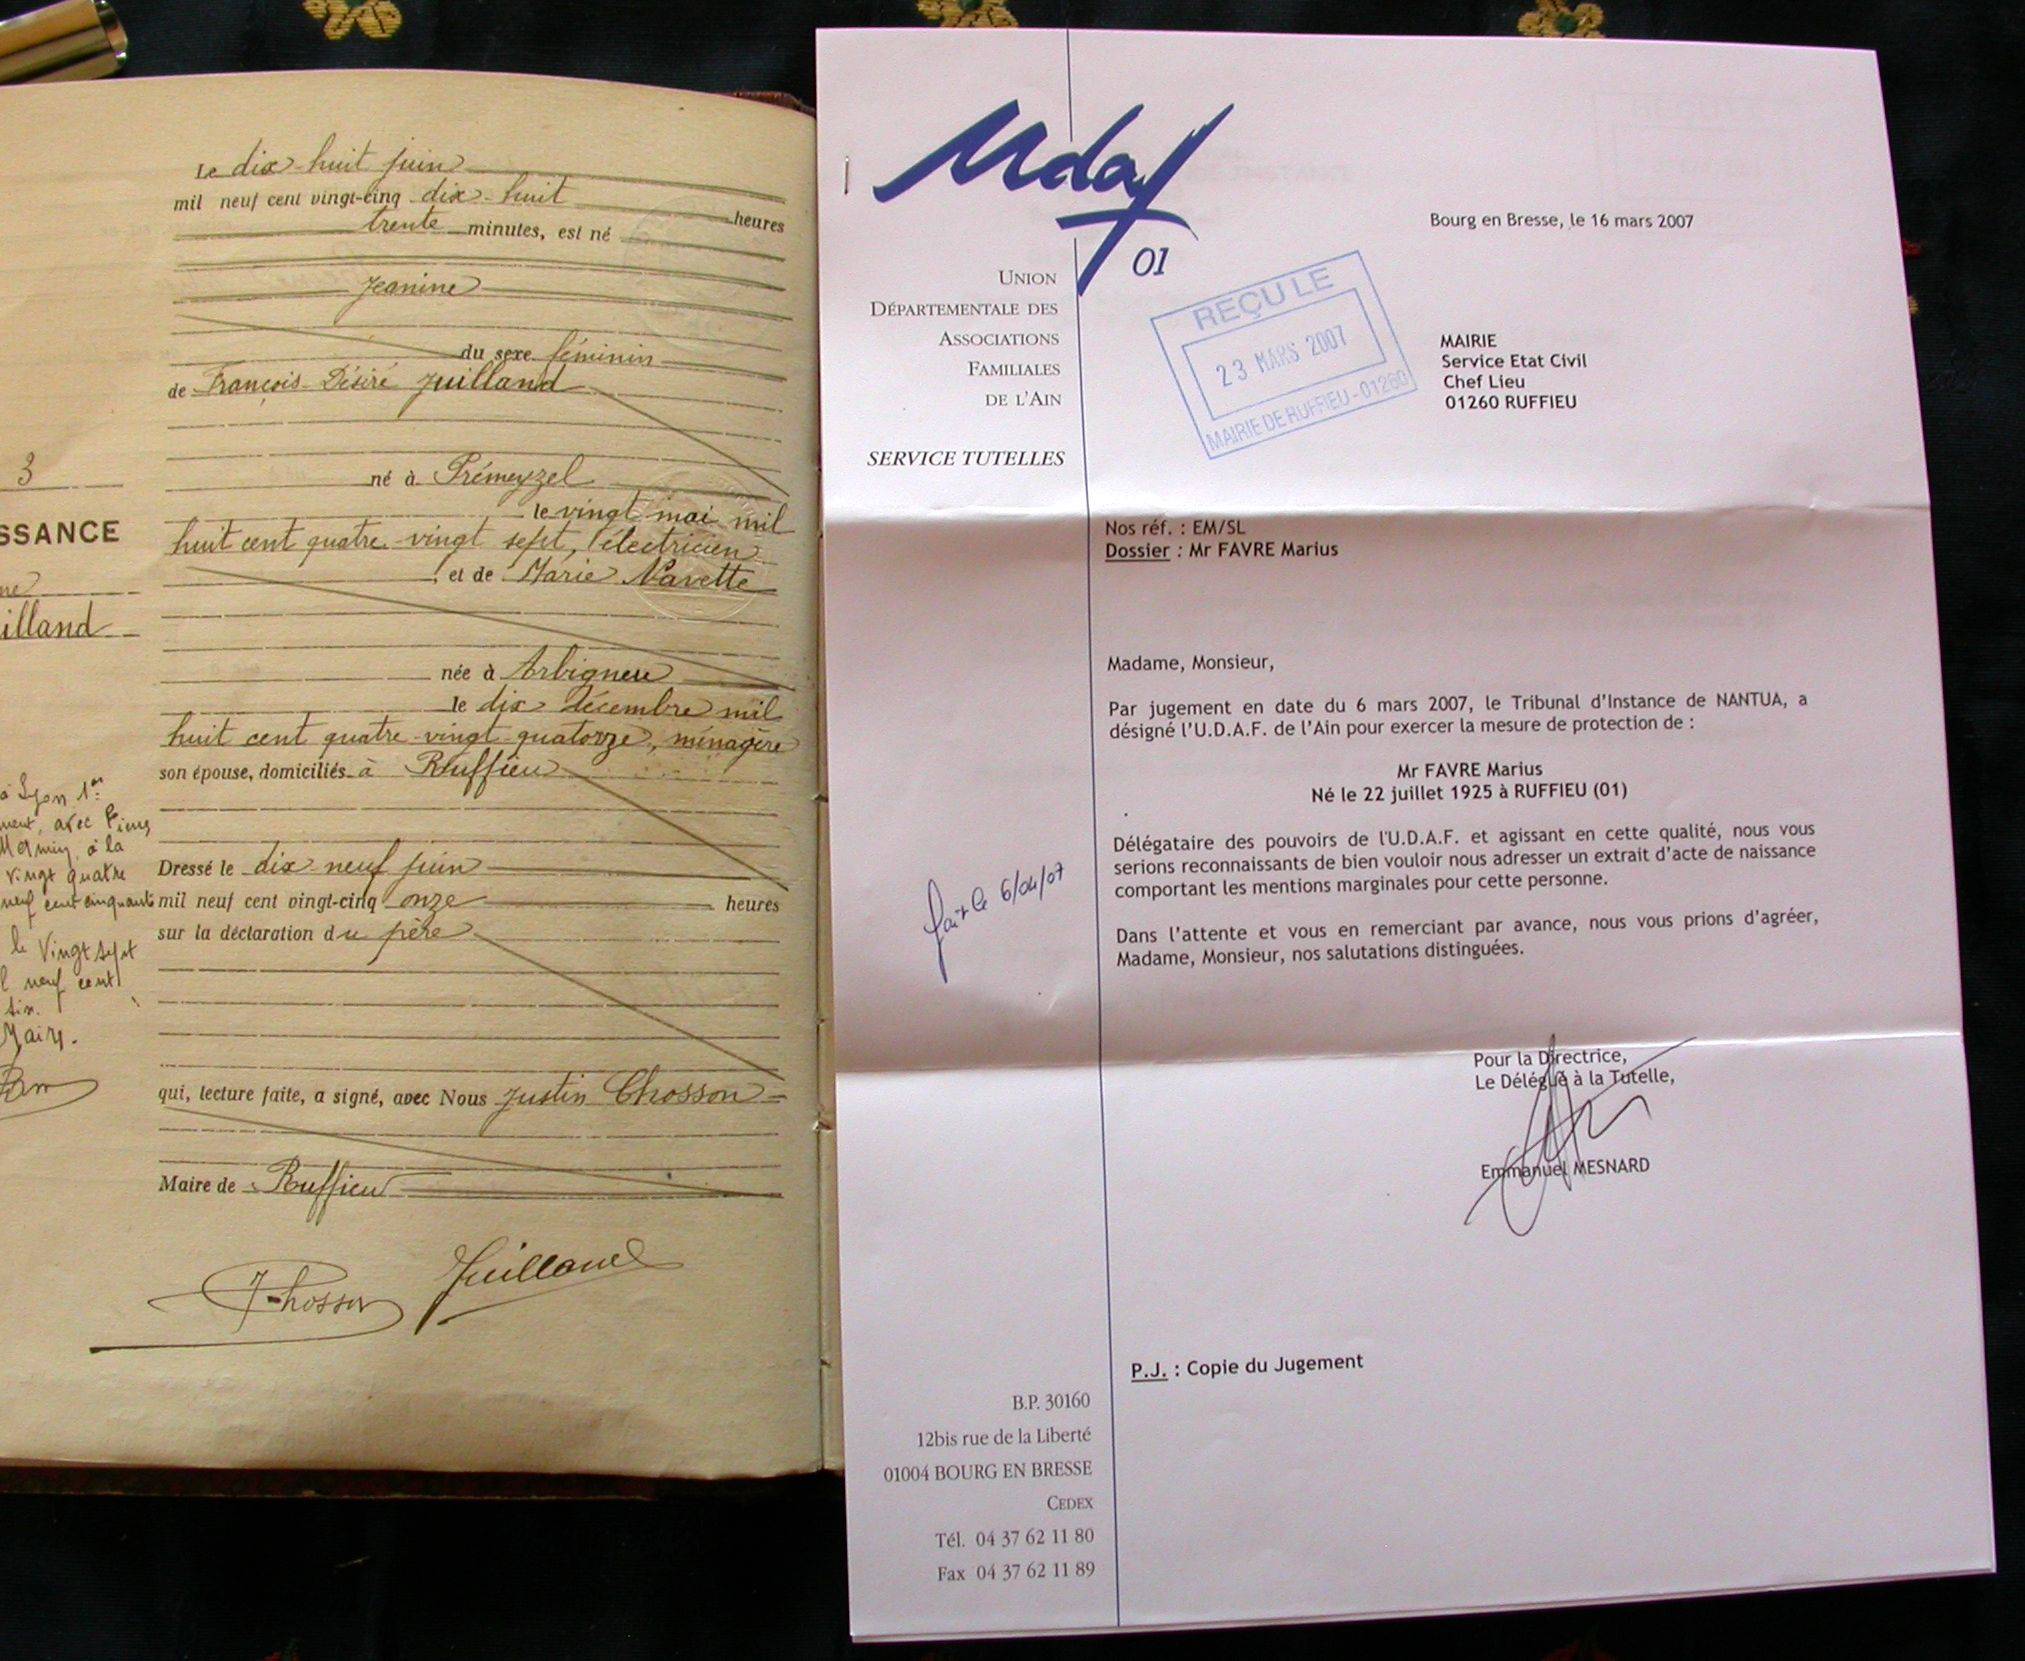 3
SSANCE
illand
à Lyon 1er
avec
à la
vingt quatre
neuf cent cinquante
le Vingt sept
neuf cent
six.
Maire.
Le dix-huit juin
mil neuf cent vingt-cinq dix-huit heures
trente minutes, est né
Jeanine
du sexe féminin
de François Désiré Juilland
né à Prémeyzel
le vingt mai mil
huit cent quatre-vingt sept, électricien
et de Marie Navette
née à Arbignieu
le dix décembre mil
huit cent quatre-vingt quatorze, ménagère
son épouse, domiciliés à Ruffieu
Dressé le dix-neuf juin
mil neuf cent vingt-cinq onze heures
sur la déclaration du père
qui, lecture faite, a signé, avec Nous Justin Chosson
Maire de Ruffieu
J Chosson
Juilland
Udaf
01
UNION
DÉPARTEMENTALE DES
ASSOCIATIONS
FAMILIALES
DE L'AIN
SERVICE TUTELLES
Bourg en Bresse, le 16 mars 2007
REÇU LE
23 MARS 2007
MAIRIE DE RUFFIEU - 01260
MAIRIE
Service Etat Civil
Chef Lieu
01260 RUFFIEU
Nos réf. : EM/SL
Dossier : Mr FAVRE Marius
Madame, Monsieur,
Par jugement en date du 6 mars 2007, le Tribunal d'Instance de NANTUA, a
désigné l'U.D.A.F. de l'Ain pour exercer la mesure de protection de :
Mr FAVRE Marius
Né le 22 juillet 1925 à RUFFIEU (01)
Délégataire des pouvoirs de l'U.D.A.F. et agissant en cette qualité, nous vous
serions reconnaissants de bien vouloir nous adresser un extrait d'acte de naissance
comportant les mentions marginales pour cette personne.
fait le 6/04/07
Dans l'attente et vous en remerciant par avance, nous vous prions d'agréer,
Madame, Monsieur, nos salutations distinguées.
Pour la Directrice,
Le Délégué à la Tutelle,
Emmanuel MESNARD
P.J. : Copie du Jugement
B.P. 30160
12bis rue de la Liberté
01004 BOURG EN BRESSE
CEDEX
Tél. 04 37 62 11 80
Fax 04 37 62 11 89